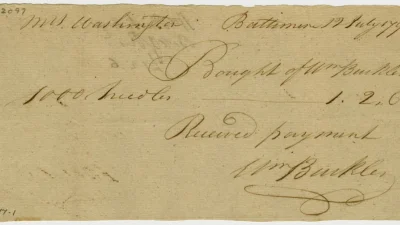 2097
Mrs. Washington Baltimore 12 July 179
Bought of Wm Buckler
1000 Needles 1. 2. 6
Received payment
Wm Buckler